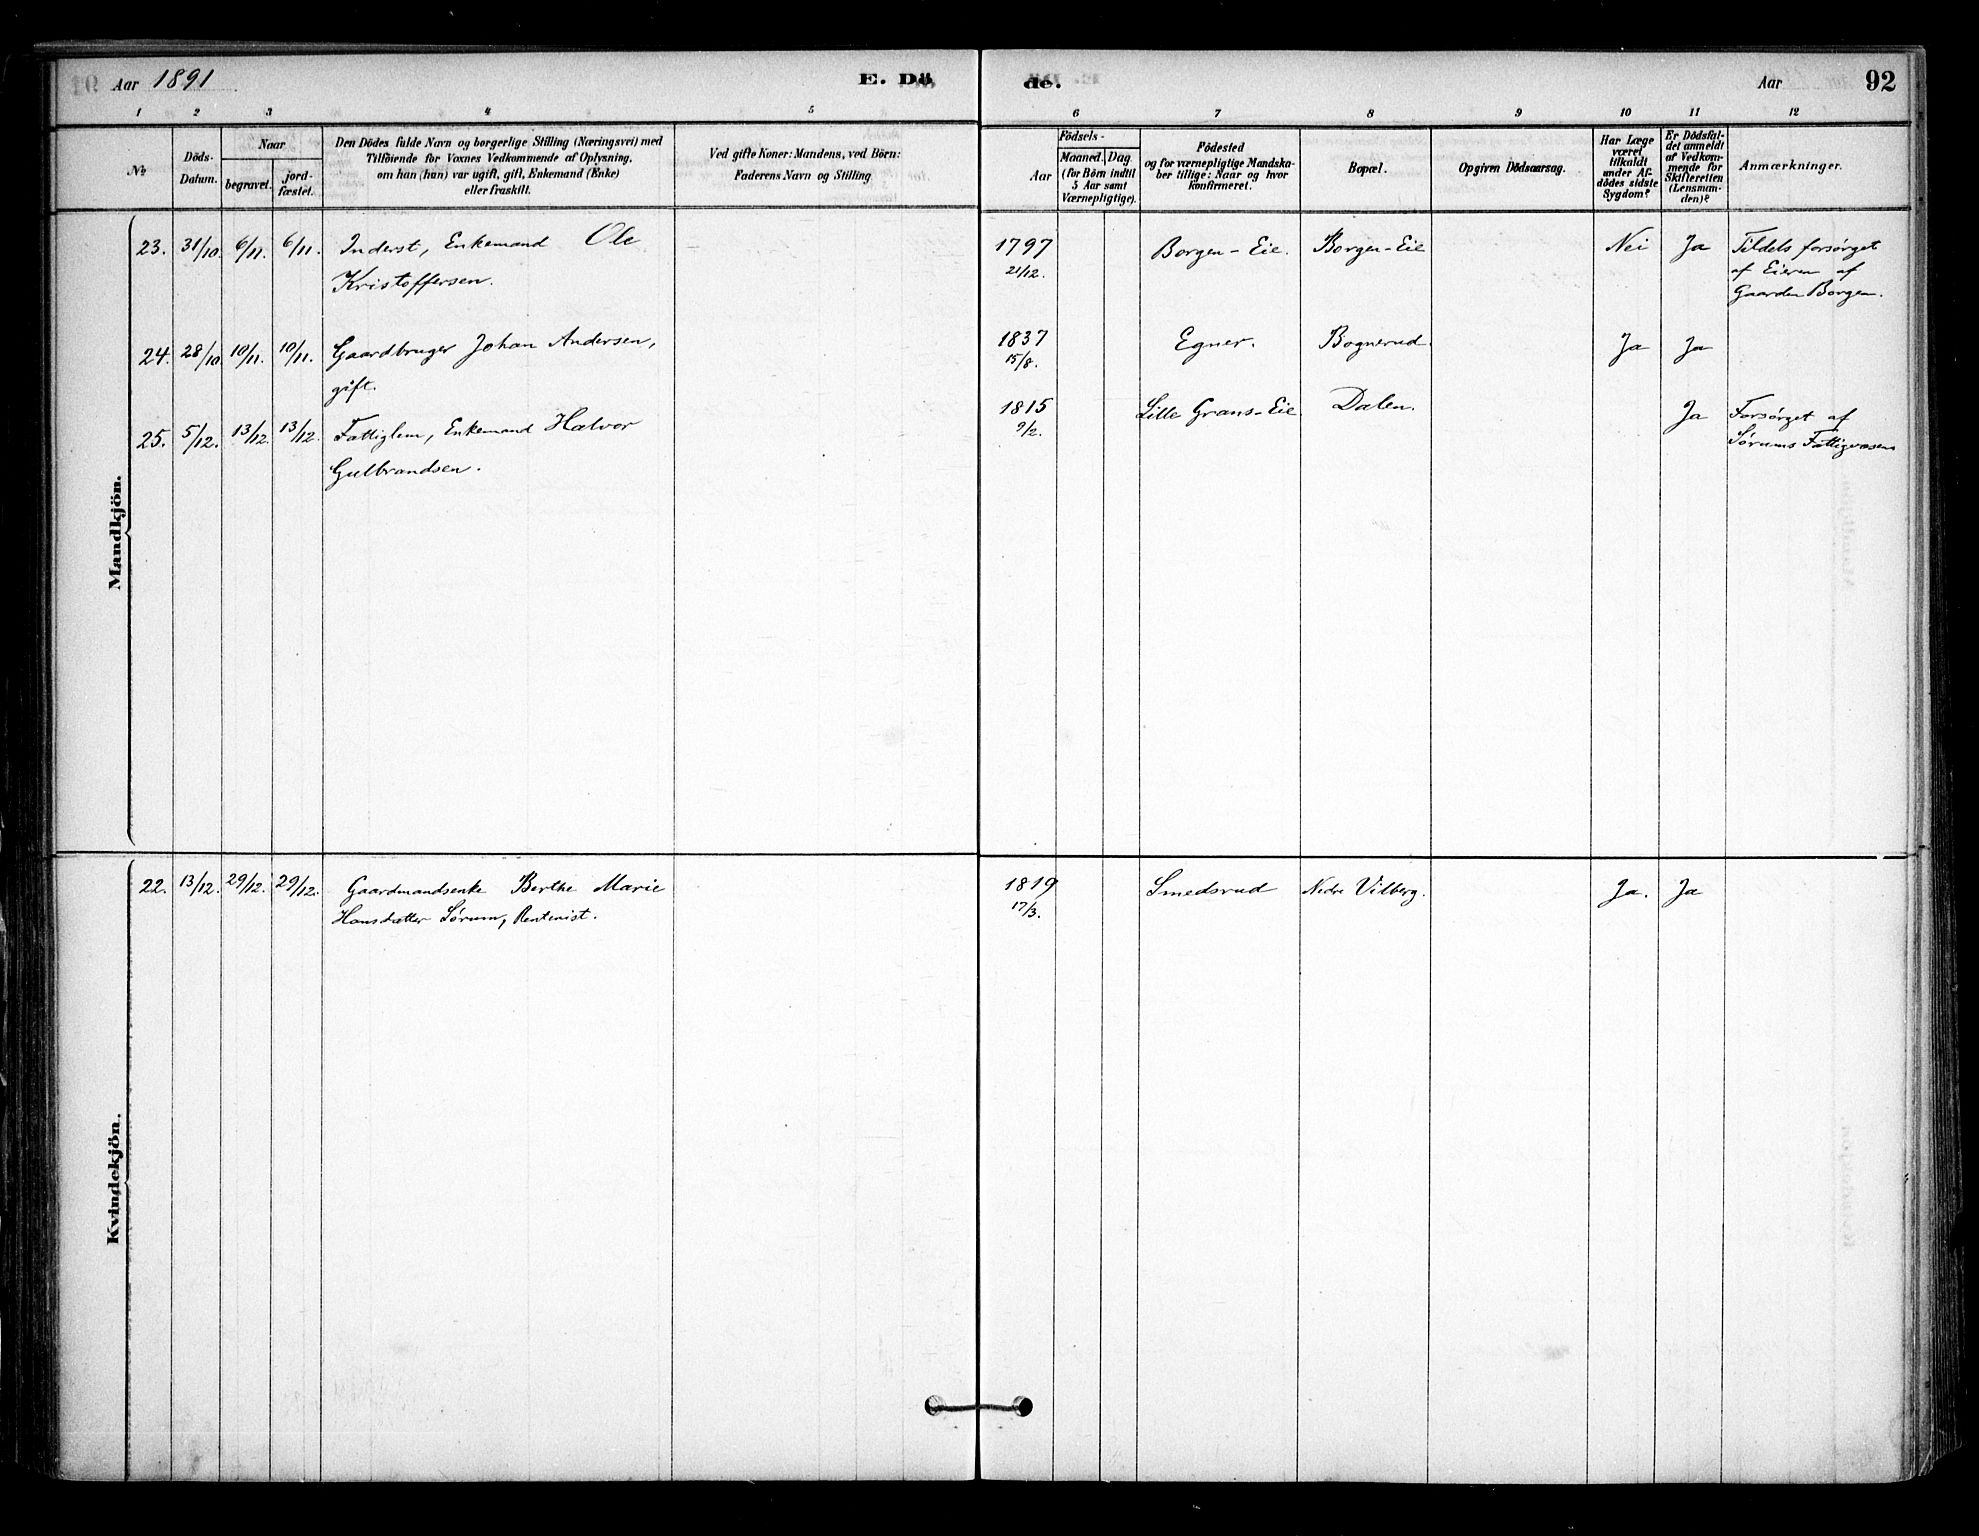 Aar 1891
E. Dö
de.
Aar
92
1 2 3 4 5 6 7 8 9 10 11 12
No
Döds-
Datum.
Naar
begravet.
jord-
fæstet.
Den Dödes fulde Navn og borgerlige Stilling (Næringsvei) med
Tilföiende for Voxnes Vedkommende af Oplysning,
om han (hun) var ugift, gift, Enkemand (Enke)
eller fraskilt.
Ved gifte Koner: Mandens, ved Börn:
Faderens Navn og Stilling
Födsels-
Aar
Maaned.
Dag.
(for Börn indtil
5 Aar samt
Værnepligtige).
Födested
og for værnepligtige Mandska-
ber tillige: Naar og hvor
konfirmeret.
Bopæl.
Opgiven Dödsaarsag.
Har Læge
været
tilkaldt
under Af-
dödes sidste
Sygdom?
Er Dödsfal-
det anmeldt
af Vedkom-
mende for
Skifteretten
(Lensman-
den)?
Anmærkninger.
Mandkjön.
23. 31/10 6/11. 6/11. Inderst, Enkemand Ole
Kristoffersen.
1797
21/12.
Borgen-Eie. Borgen-Eie Nei Ja Tildels forsørget
af Eieren af
Gaarden Borgen.
24. 28/10 10/11. 10/11. Gaardbruger Johan Andersen,
gift.
1837
15/8.
Egner. Bognerud. Ja Ja
25. 5/12. 13/12. 13/12. Fattiglem, Enkemand Halvor
Gulbrandsen.
1815
9/2.
Lille Grans-Eie. Dalen. Ja Forsørget af
Sørums Fattigvæsen
Kvindekjön.
22. 13/12. 29/12. 29/12. Gaardmandsenke Berthe Marie
Hansdatter Sørum, Rentenist.
1819
17/3.
Smedsrud Nedre Vilberg. Ja. Ja